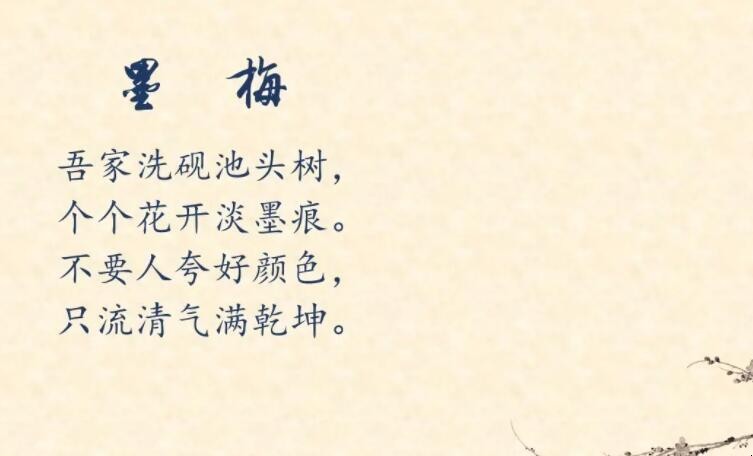 墨 梅
吾家洗砚池头树，
个个花开淡墨痕。
不要人夸好颜色，
只流清气满乾坤。